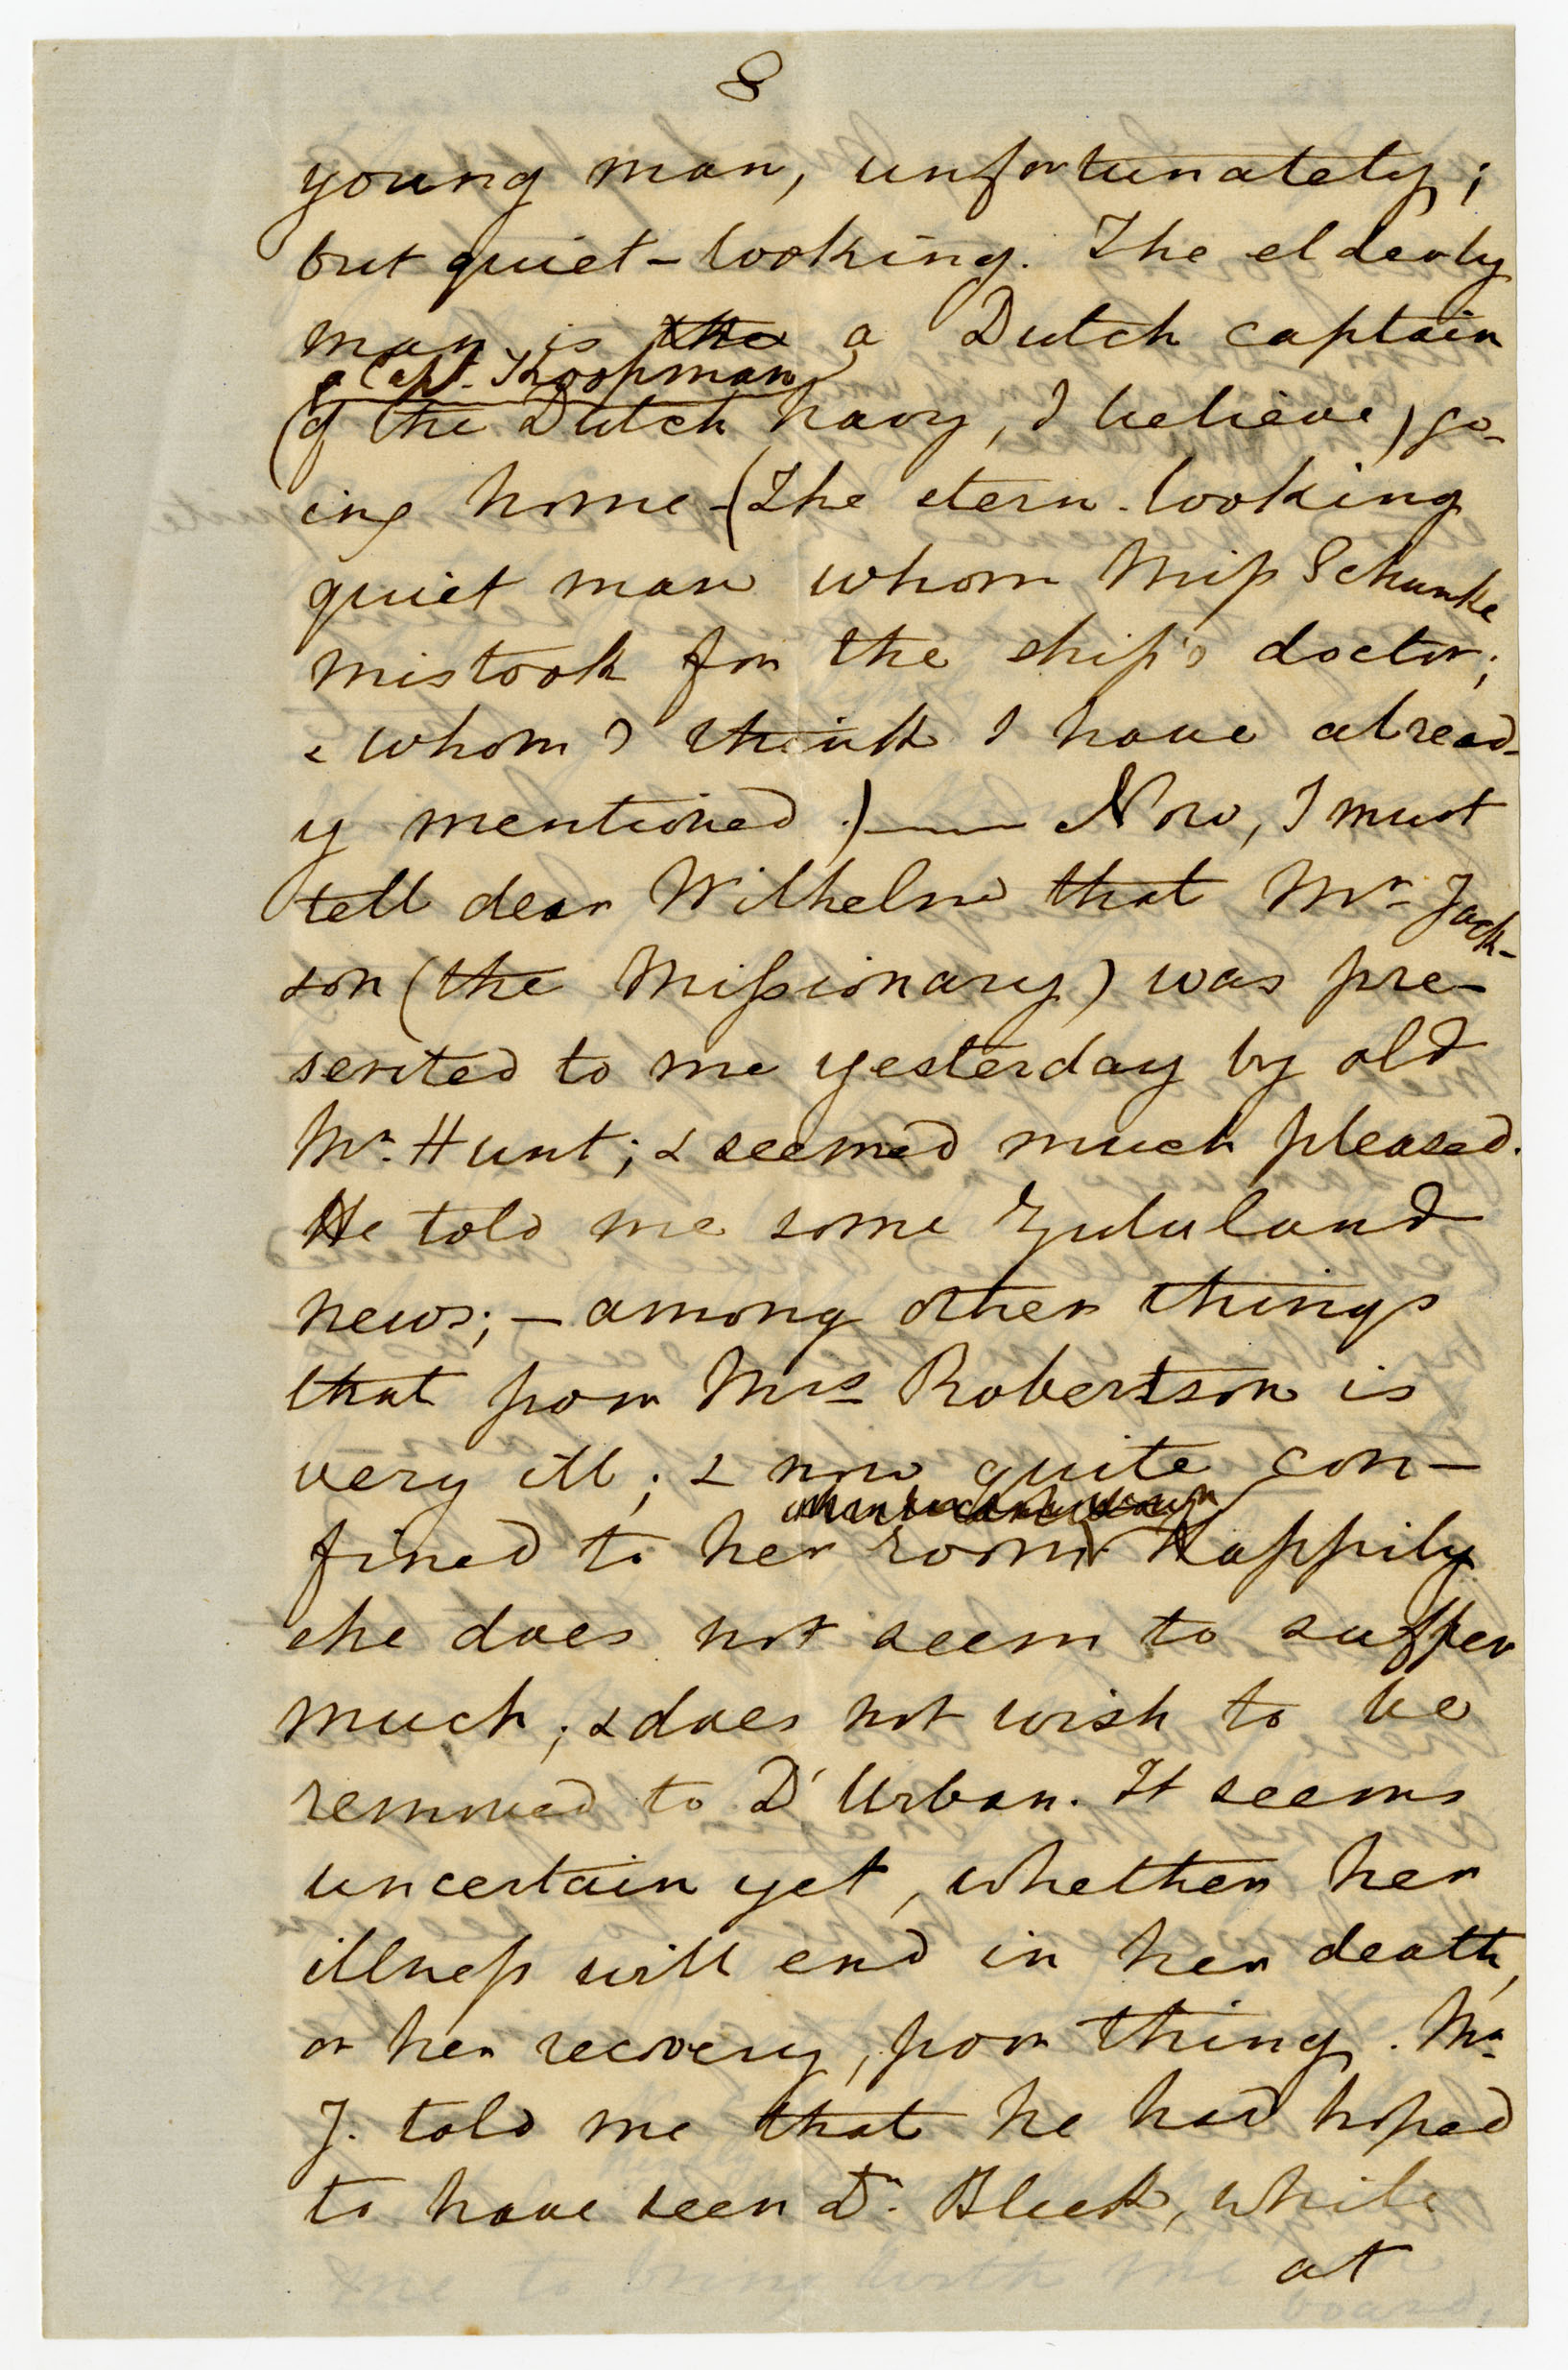 8
young man, unfortunately;
but quiet-looking. The elderly
man is the a Dutch captain
a Capt. Koopman
(of the Dutch navy, I believe) go-
ing home - (The stern-looking
quiet man whom Miss Schunke
mistook for the ship's doctor;
& whom I think I have alread-
y mentioned.) — Now, I must
tell dear Wilhelm that Mr Jack-
son (the Missionary) was pre-
sented to me yesterday by old
Mr. Hunt; & seemed much pleased.
He told me some Zululand
news; - among other things
that poor Mrs Robertson is
very ill; & now quite con-
fined to her room. Happily
she does not seem to suffer
much; & does not wish to be
removed to D'Urban. It seems
uncertain yet, whether her
illness will end in her death,
or her recovery, poor thing. Mr.
J. told me that he had hoped
to have seen Dr. Bleek, while
at